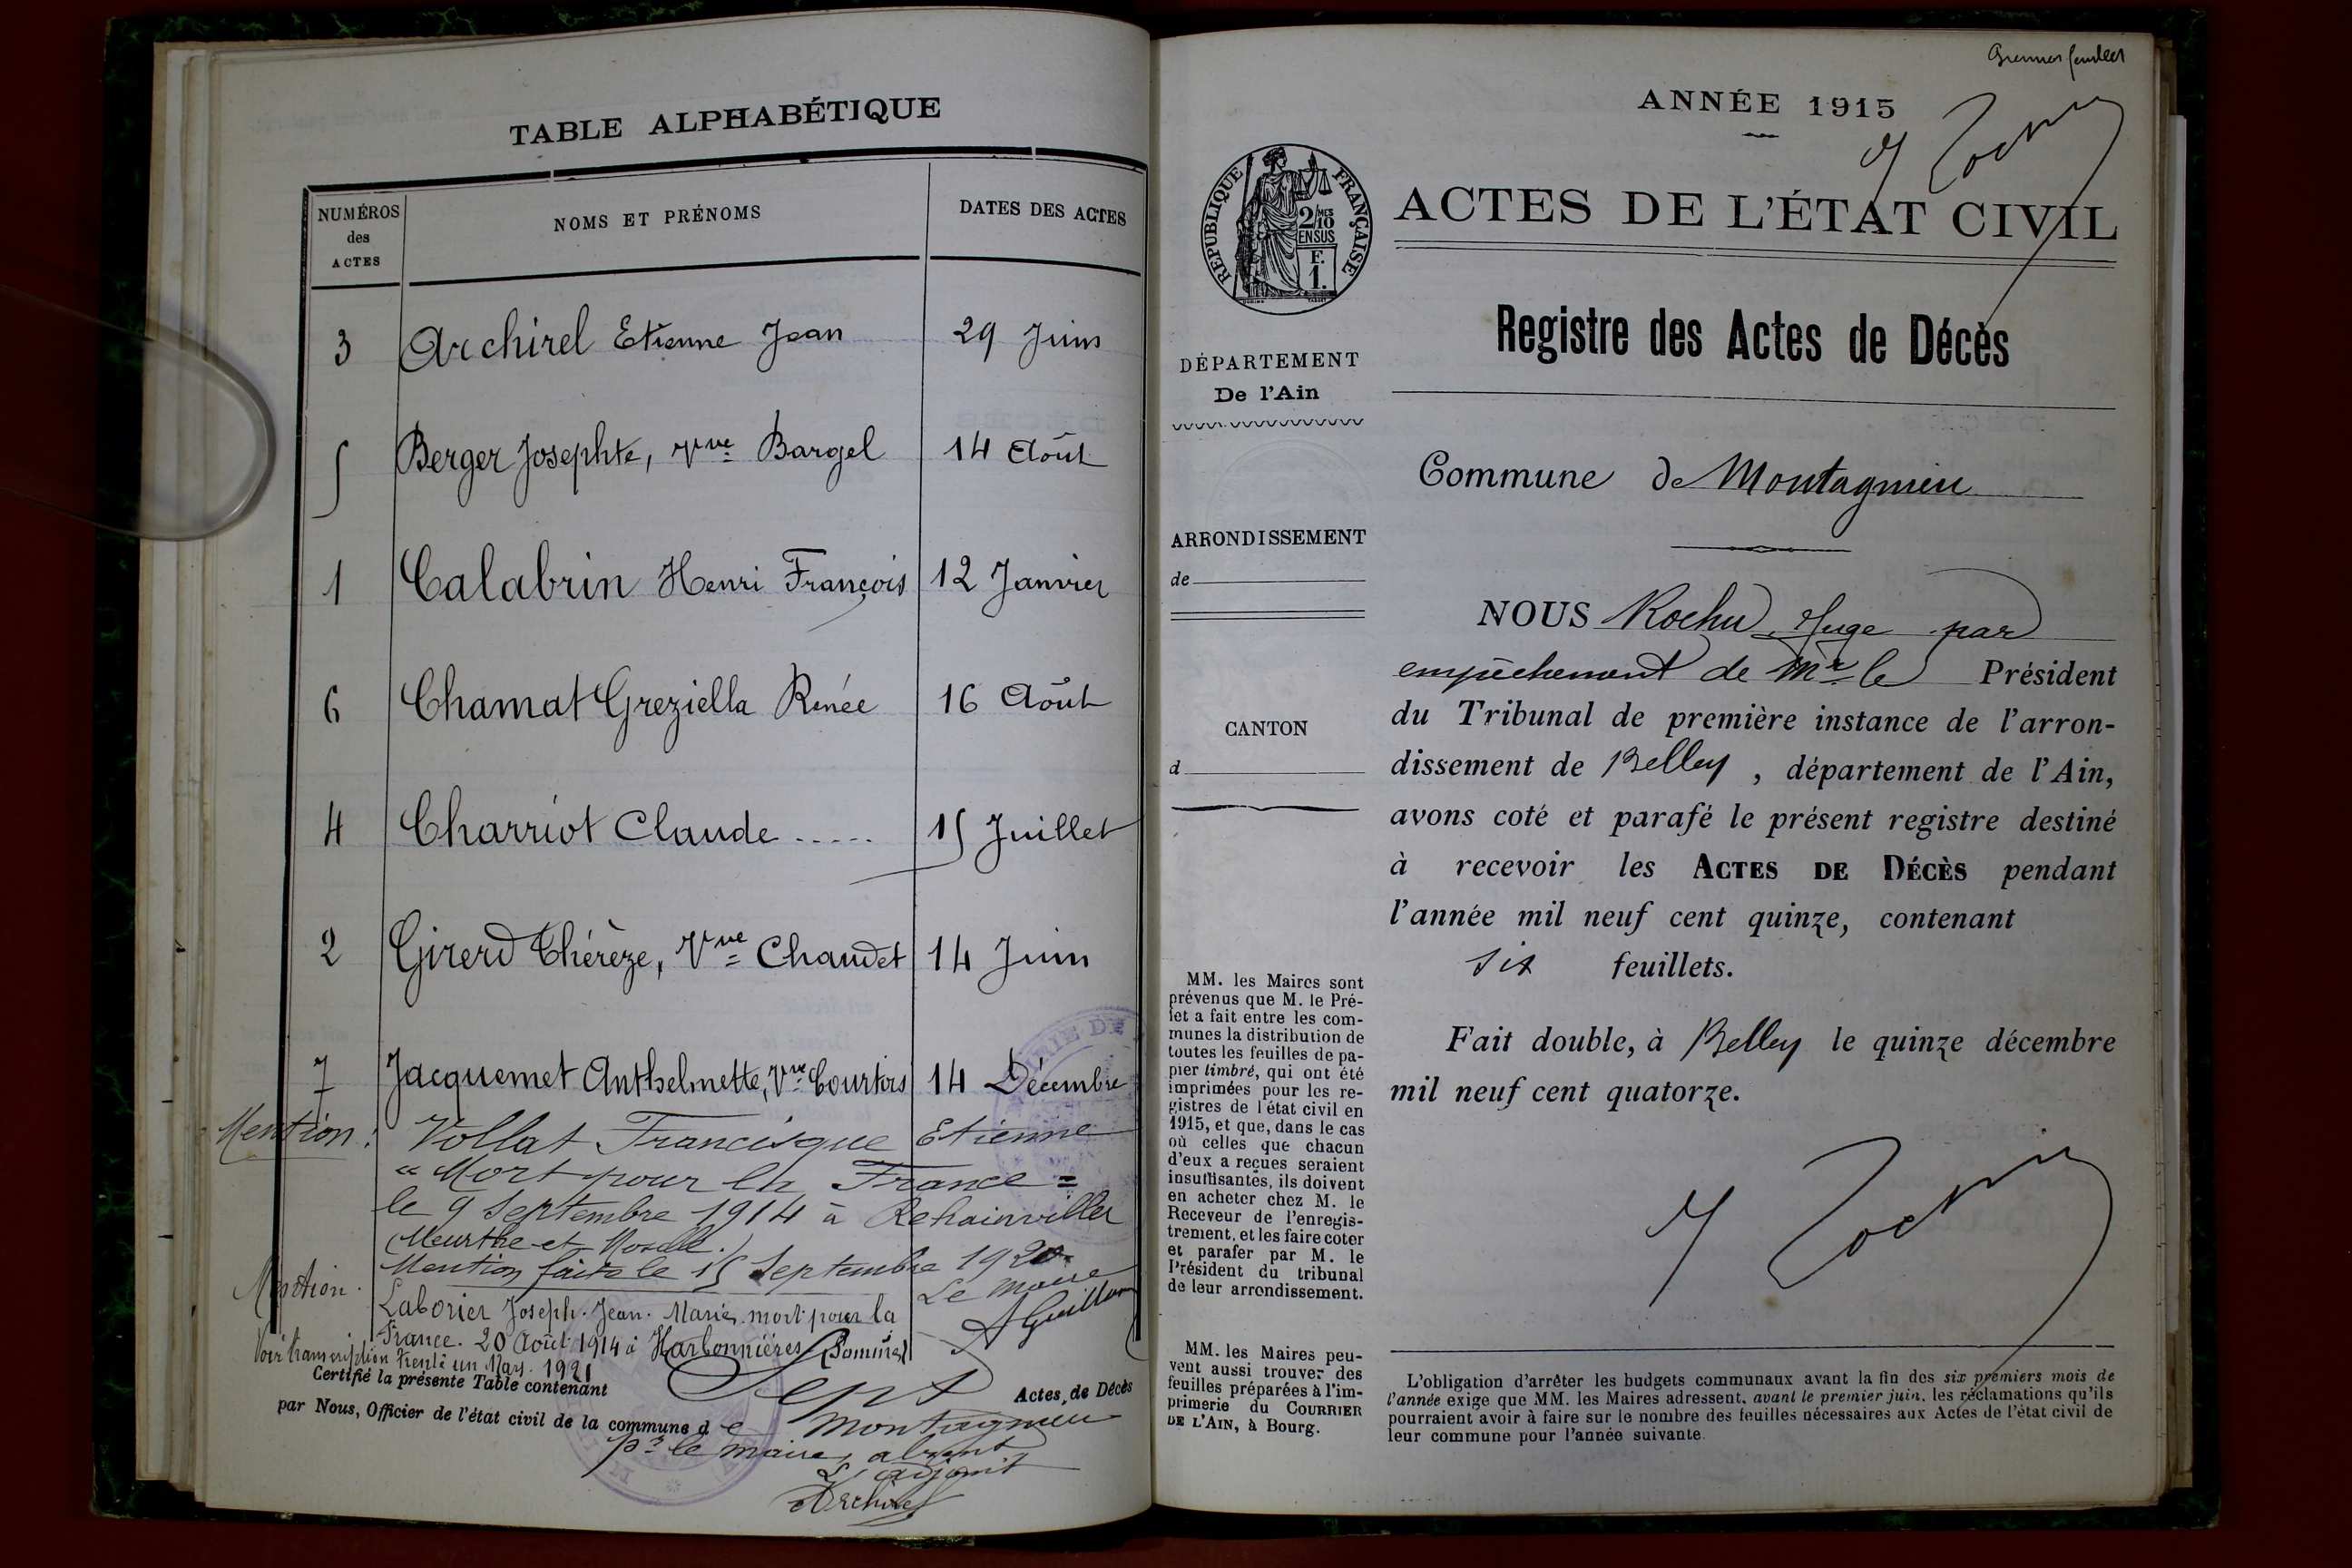 TABLE ALPHABÉTIQUE
NUMÉROS des ACTES
NOMS ET PRÉNOMS
DATES DES ACTES
3 Archirel Etienne Jean 29 Juin
5 Berger Josephte, Vve Bargel 14 Août
1 Calabrin Henri François 12 Janvier
6 Chamat Greziella Renée 16 Août
4 Charriot Claude ..... 15 Juillet
2 Girerd Thérèze, Vve Chaudet 14 Juin
7 Jacquemet Anthelmette, Vve Courtois 14 Décembre
Mention: Vollat Francisque Etienne
"Mort pour la France =
le 9 Septembre 1914 à Rehainviller
(Meurthe-et-Moselle.)
Mention faite le 15 Septembre 1920
Le Maire
A Guillon
Mention. Laborier Joseph. Jean. Marie, mort pour la
France. 20 Août 1914 à Harbonnières (Somme)
Voir transcription trente un Mars 1921
Certifié la présente Table contenant Sept Actes de Décès
par Nous, Officier de l'état civil de la commune de Montagnieu
pr le maire, absent
L'adjoint
Archirel
ANNÉE 1915
ACTES DE L'ÉTAT CIVIL
RÉPUBLIQUE FRANÇAISE
2/10 MES
EN SUS
F.
1.
Registre des Actes de Décès
DÉPARTEMENT
De l'Ain
Commune de Montagnieu
ARRONDISSEMENT
de
CANTON
d
NOUS Rochu, Juge par
empêchement de Mr le Président
du Tribunal de première instance de l'arron-
dissement de Belley, département de l'Ain,
avons coté et parafé le présent registre destiné
à recevoir les ACTES DE DÉCÈS pendant
l'année mil neuf cent quinze, contenant
six feuillets.
Fait double, à Belley le quinze décembre
mil neuf cent quatorze.
MM. les Maires sont
prévenus que M. le Pré-
fet a fait entre les com-
munes la distribution de
toutes les feuilles de pa-
pier timbré, qui ont été
imprimées pour les re-
gistres de l'état civil en
1915, et que, dans le cas
où celles que chacun
d'eux a reçues seraient
insuffisantes, ils doivent
en acheter chez M. le
Receveur de l'enregis-
trement, et les faire coter
et parafer par M. le
Président du tribunal
de leur arrondissement.
MM. les Maires peu-
vent aussi trouver des
feuilles préparées à l'im-
primerie du COURRIER
DE L'AIN, à Bourg.
L'obligation d'arrêter les budgets communaux avant la fin des six premiers mois de
l'année exige que MM. les Maires adressent, avant le premier juin, les réclamations qu'ils
pourraient avoir à faire sur le nombre des feuilles nécessaires aux Actes de l'état civil de
leur commune pour l'année suivante.